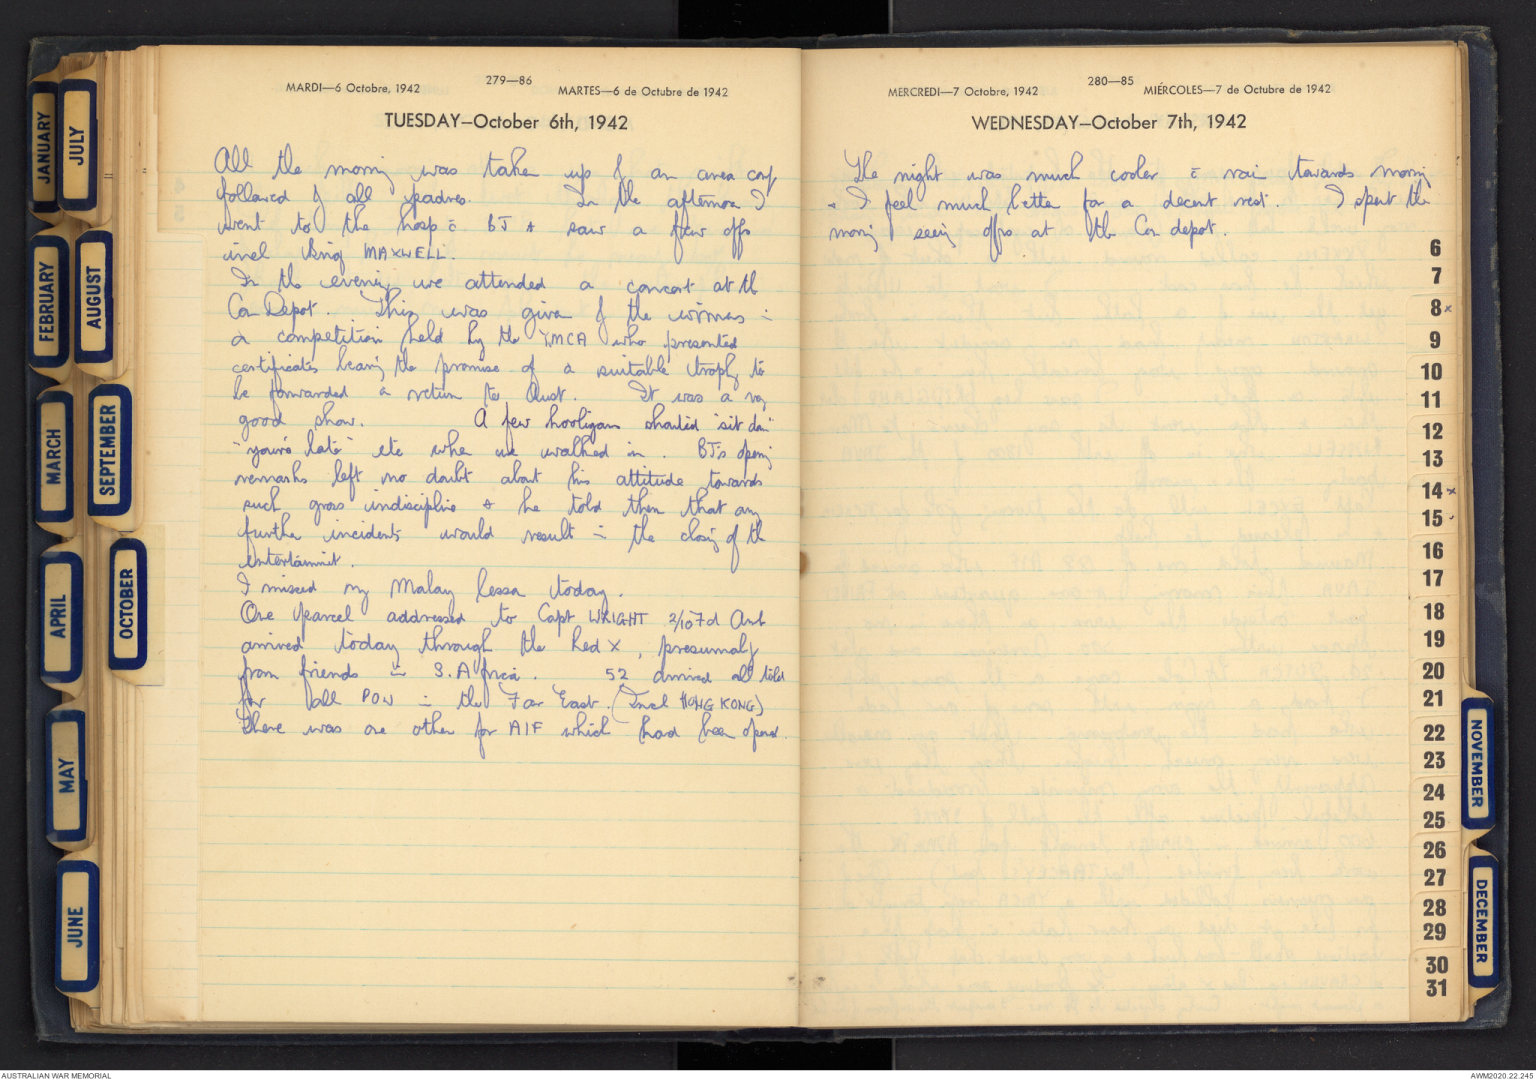 279—86
MARDI—6 Octobre, 1942
MARTES—6 de Octubre de 1942
TUESDAY—October 6th, 1942
All the morning was taken up by an area conf
followed by all padres. In the afternoon I
went to the hosp c̄ BJ & saw a few offs
incl Brig MAXWELL.
In the evening we attended a concert at the
Con Depot. This was given by the winners in
a competition held by the YMCA who presented
certificates bearing the promise of a suitable trophy to
be forwarded on return to Aust. It was a very
good show. A few hooligans shouted "sit down"
"you're late" etc when we walked in. BJ's opening
remarks left no doubt about his attitude towards
such gross indiscipline & he told them that any
further incidents would result in the closing of the
entertainment.
I missed my Malay lesson today.
One parcel addressed to Capt WRIGHT 2/10 Fd Amb
arrived today through the Red X, presumably
from friends in S. Africa. 52 arrived all told
for all POW in the Far East. (Incl HONG KONG)
There was one other for AIF which had been opened.
280—85
MERCREDI—7 Octobre, 1942
MIÉRCOLES—7 de Octubre de 1942
WEDNESDAY—October 7th, 1942
The night was much cooler c̄ rain towards morning
& I feel much better for a decent rest. I spent the
morning seeing offrs at the Con depot.
6
7
8x
9
10
11
12
13
14x
15
16
17
18
19
20
21
22
23
24
25
26
27
28
29
30
31
JANUARY
JULY
FEBRUARY
AUGUST
MARCH
SEPTEMBER
APRIL
OCTOBER
MAY
JUNE
NOVEMBER
DECEMBER
AUSTRALIAN WAR MEMORIAL
AWM2020.22.245